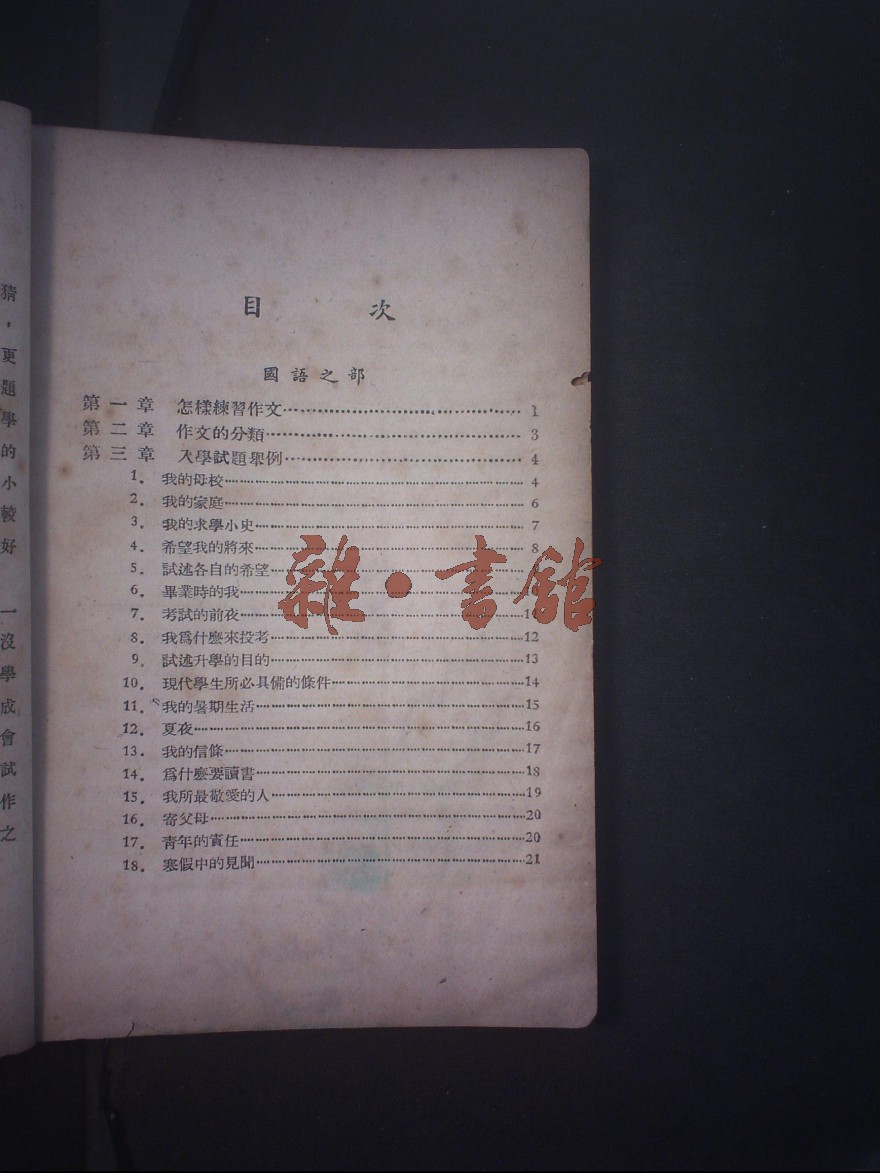 目次
國語之部
第一章 怎樣練習作文 1
第二章 作文的分類 3
第三章 入學試題舉例 4
1. 我的母校 4
2. 我的家庭 6
3. 我的求學小史 7
4. 希望我的將來 8
5. 試述各自的希望
6. 畢業時的我
7. 考試的前夜
8. 我爲什麽來投考 12
9. 試述升學的目的 13
10. 現代學生所必具備的條件 14
11. 我的暑期生活 15
12. 夏夜 16
13. 我的信條 17
14. 爲什麽要讀書 18
15. 我所最敬愛的人 19
16. 寄父母 20
17. 靑年的責任 20
18. 寒假中的見聞 21
雜・書館
猜，更題學的小較好
一沒學成會試作之